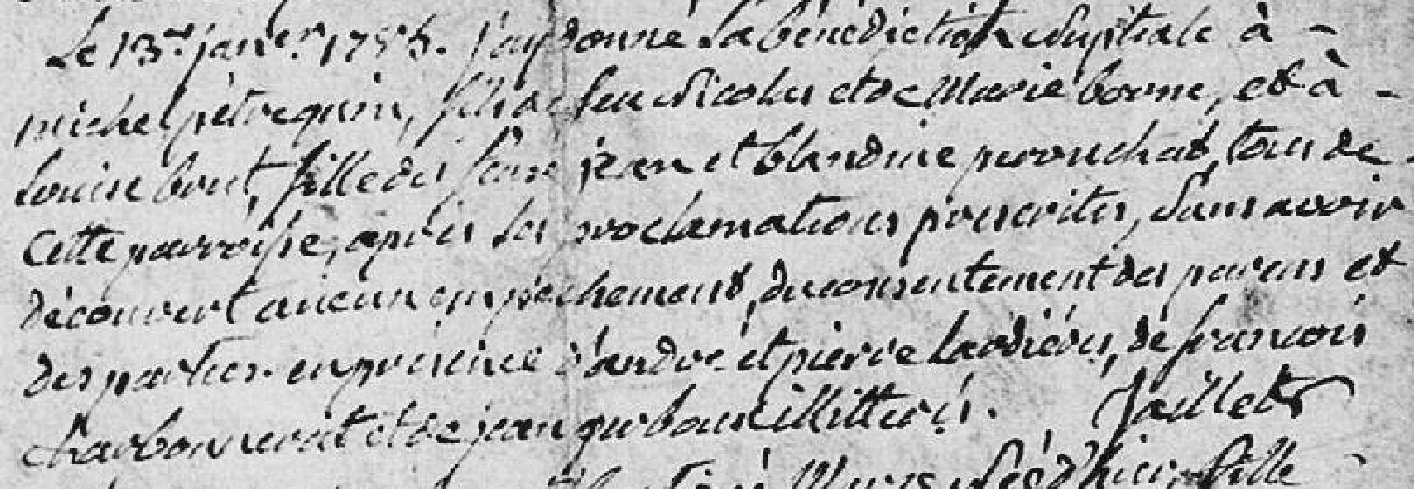 Le 13e janer 1785. j'ay donné la bénédiction nuptiale à -
michel pétrequin, fils de feu nicolas et de Marie borne, et à -
Louise bout, fille des feus jean et blandine peronchat, tous de
cette parroisse, après les proclamations prescrites, sans avoir
découvert aucun empêchement, du consentement des parens et
des parties. en présence d'andré et pierre lardiérés, de francois
charbonnerat et de jean gurbaux illitterés. Jaillet
hier, fille